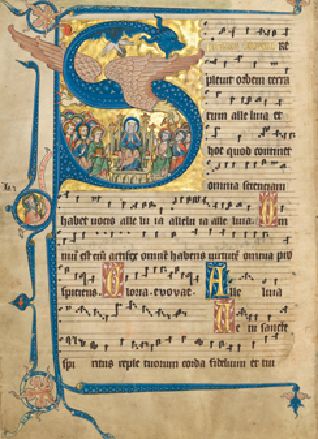 S re
pleuit orbem terra
rum alle luia et
hoc quod continet
omnia scienciam
habet uocis alle lu ia allelu ia alle luia.
artifex habens omnia
spiciens. Gloria. euouae. Alle luia
Ue ni sancte
spi ritus reple tuorum corda fidelium et tui